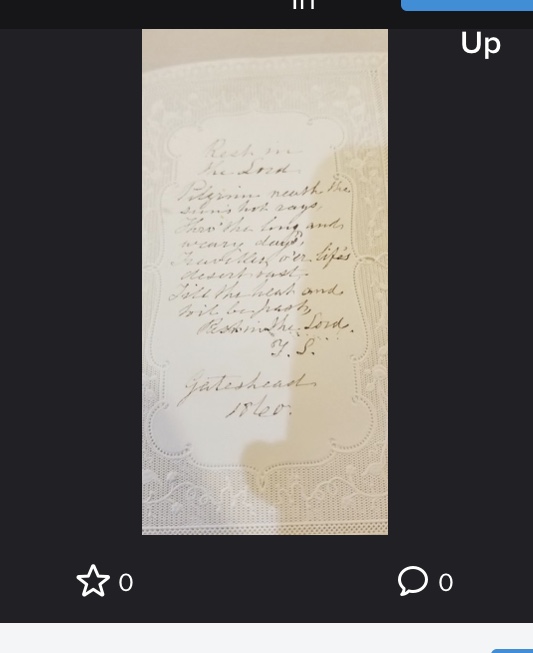 in
Up
Rest in
the Lord
Pilgrim neath the
sun's hot rays,
Thro' the long and
weary days,
Traveller o'er life's
desert vast
Till the heat and
toil be past,
Rest in the Lord.
T. S.
Gateshead
1860.
0
0